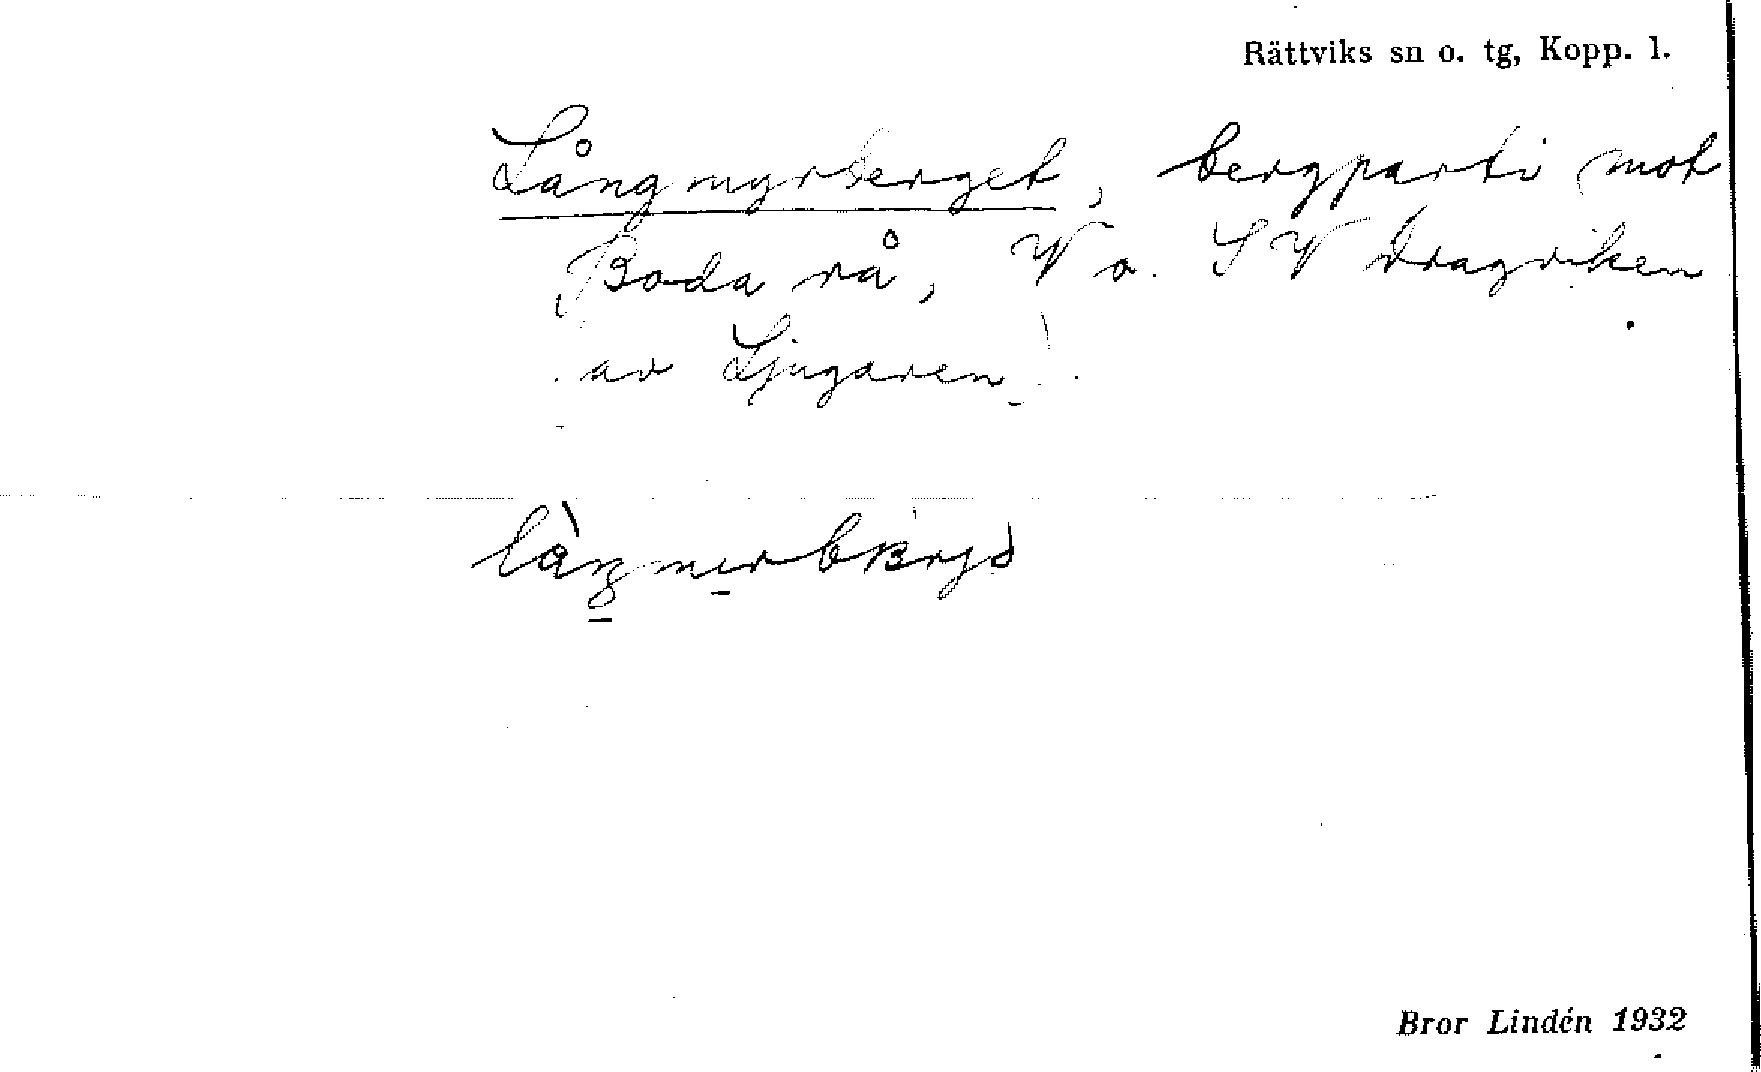 Rättviks sn o. tg, Kopp. l.
Långmyrberget, bergparti mot
Boda rå, V o. SV Dragviken
av Ljugaren.
Bror Lindén 1932